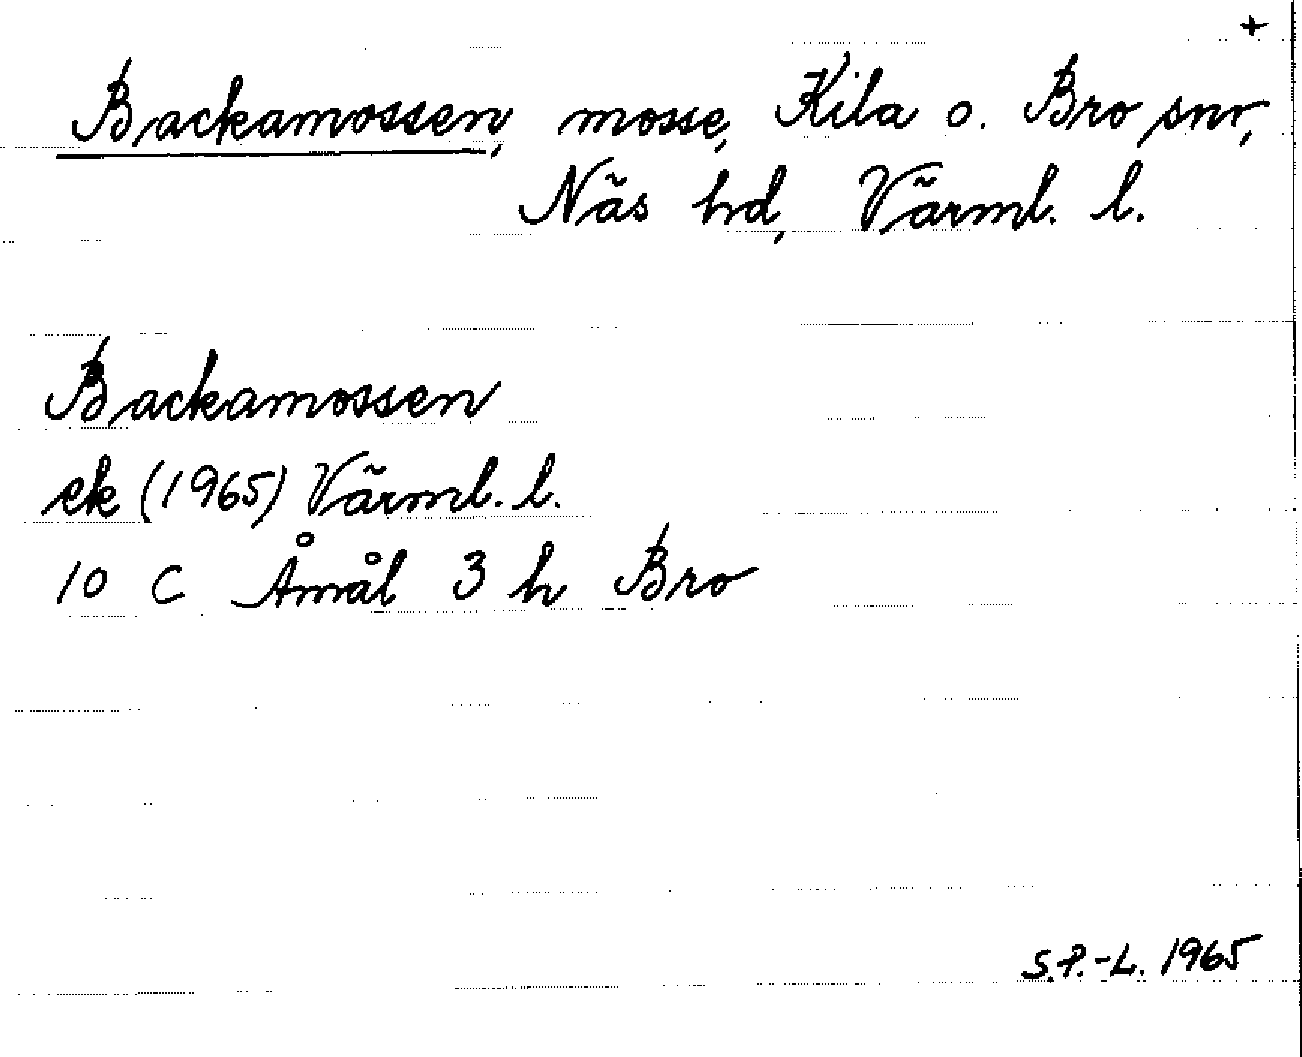 +
Backamossen, mosse, Kila o. Bro snr,
Näs hd, Värml. l.
Backamossen
ek (1965) Värml. l.
10 C Åmål 3 h Bro
S.P.-L. 1965